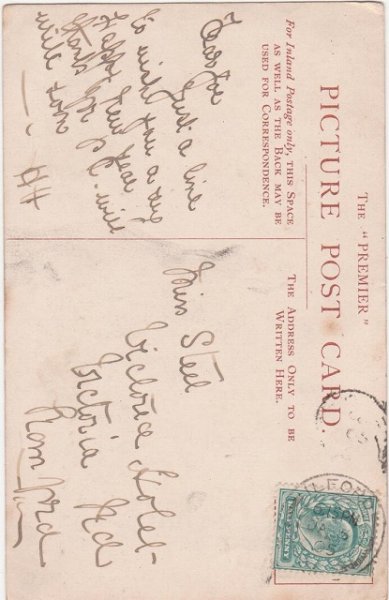 THE "PREMIER"
PICTURE POST CARD.
For Inland Postage only, THIS SPACE
AS WELL AS THE BACK MAY BE
USED FOR CORRESPONDENCE.
THE ADDRESS ONLY TO BE
WRITTEN HERE.
Dear
Just a line
to wish you a very
Happy New Year
will
write soon
HH
Miss Steel
Victoria Hotel
Victoria Rd
Romford
ILFORD
HALF PENNY